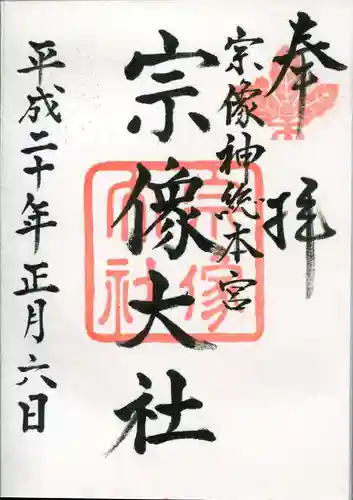 奉拝
宗像神総本宮
宗像大社
平成二十年正月六日
宗像
大社